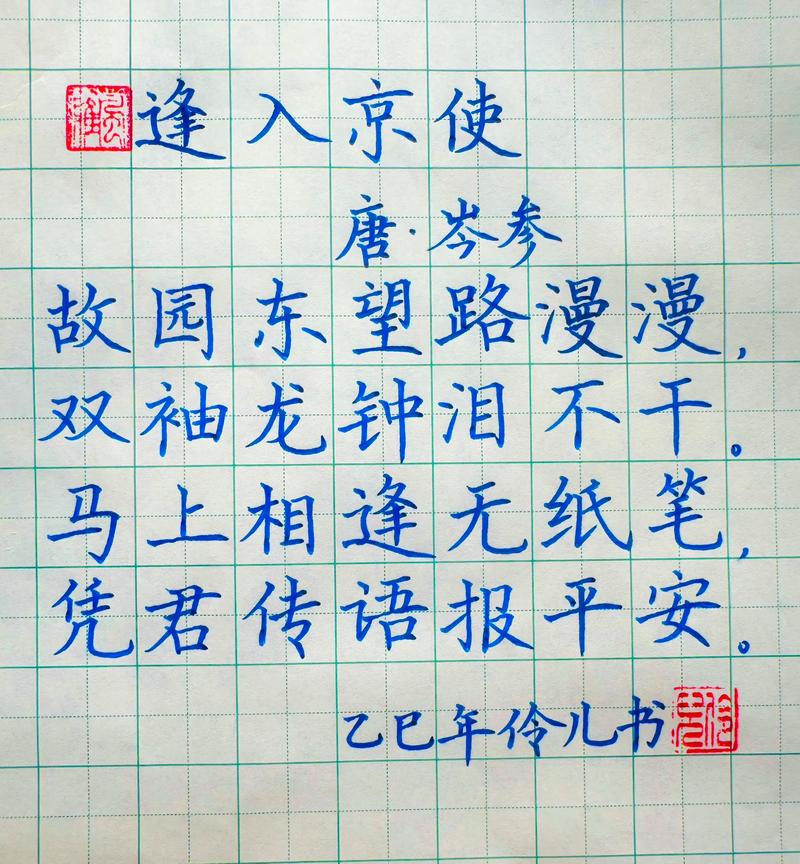 逢入京使
唐·岑参
故园东望路漫漫，
双袖龙钟泪不干。
马上相逢无纸笔，
凭君传语报平安。
乙巳年伶儿书